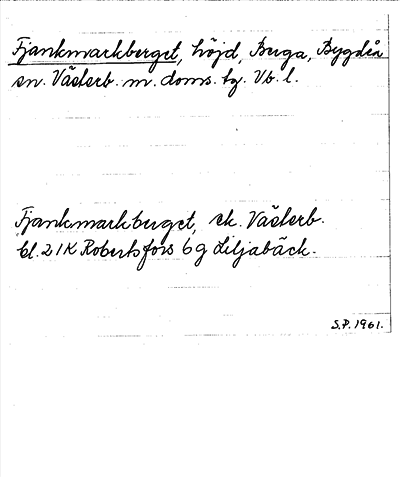 Fjankmarkberget, höjd, Berga, Bygdeå
sn. Västerb. m. doms. tg. Vb. l.
Fjankmarkberget, ek. Västerb.
bl. 21K Robertsfors 6g Liljabäck.
S.P. 1961.